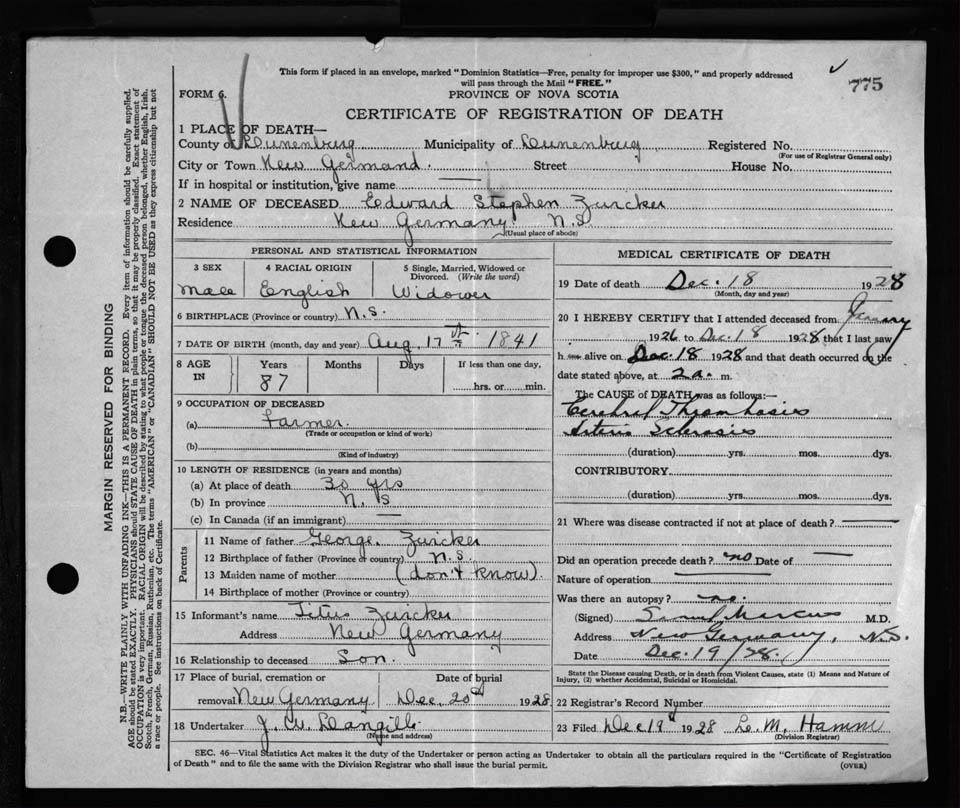 This form if placed in an envelope, marked "Dominion Statistics—Free, penalty for improper use $300," and properly addressed
will pass through the Mail "FREE."
775
FORM 6.
PROVINCE OF NOVA SCOTIA
CERTIFICATE OF REGISTRATION OF DEATH
1 PLACE OF DEATH—
County of Lunenburg Municipality of Lunenburg Registered No.
(For use of Registrar General only)
City or Town New Germand. Street House No.
If in hospital or institution, give name —
2 NAME OF DECEASED Edward Stephen Zwicker
Residence New Germany N.S.
(Usual place of abode)
PERSONAL AND STATISTICAL INFORMATION
3 SEX 4 RACIAL ORIGIN 5 Single, Married, Widowed or
Divorced. (Write the word)
Male English Widower
6 BIRTHPLACE (Province or country) N.S.
7 DATE OF BIRTH (month, day and year) Aug, 17th 1841
8 AGE IN Years Months Days If less than one day,
87 hrs. or min.
9 OCCUPATION OF DECEASED
(a) Farmer.
(Trade or occupation or kind of work)
(b)
(Kind of industry)
10 LENGTH OF RESIDENCE (in years and months)
(a) At place of death 30 yrs
(b) In province N.S
(c) In Canada (if an immigrant) —
Parents
11 Name of father George. Zwicker
12 Birthplace of father (Province or country) N.S.
13 Maiden name of mother (don't know).
14 Birthplace of mother (Province or country)
15 Informant's name Titus Zwicker
Address New Germany
16 Relationship to deceased Son.
17 Place of burial, cremation or Date of burial
removal New Germany Dec. 20th 1928
18 Undertaker J. W. Langille
(Name and address)
MEDICAL CERTIFICATE OF DEATH
19 Date of death Dec. 18 1928
(Month, day and year)
20 I HEREBY CERTIFY that I attended deceased from January
1926 to Dec 18 1928 that I last saw
h alive on Dec. 18 1928 and that death occurred on the
date stated above, at 2 a. m.
The CAUSE of DEATH was as follows:—
Cerebral Thrombosis
Arterio Sclerosis
(duration) yrs. mos. dys.
CONTRIBUTORY.
(duration) yrs. mos. dys.
21 Where was disease contracted if not at place of death? —
Did an operation precede death? no Date of —
Nature of operation —
Was there an autopsy? no.
(Signed) Marcus M.D.
Address New Germany, N.S.
Date Dec. 19/28.
State the Disease causing Death, or in death from Violent Causes, state (1) Means and Nature of
Injury, (2) whether Accidental, Suicidal or Homicidal.
22 Registrar's Record Number
23 Filed Dec 19th 1928 L. M. Hamm
(Division Registrar)
SEC. 46—Vital Statistics Act makes it the duty of the Undertaker or person acting as Undertaker to obtain all the particulars required in the "Certificate of Registration
of Death" and to file the same with the Division Registrar who shall issue the burial permit. (OVER)
MARGIN RESERVED FOR BINDING
N.B.—WRITE PLAINLY WITH UNFADING INK—THIS IS A PERMANENT RECORD. Every item of information should be carefully supplied.
AGE should be stated EXACTLY. PHYSICIANS should STATE CAUSE OF DEATH in plain terms, so that it may be properly classified. Exact statement of
OCCUPATION is very important. RACIAL ORIGIN will be described by stating to what people or tongue the deceased person belonged, whether English, Irish,
Scotch, French, German, Russian, Ruthenian, etc. The terms "AMERICAN" or "CANADIAN" SHOULD NOT BE USED as they express citizenship but not
a race or people. See instructions on back of Certificate.